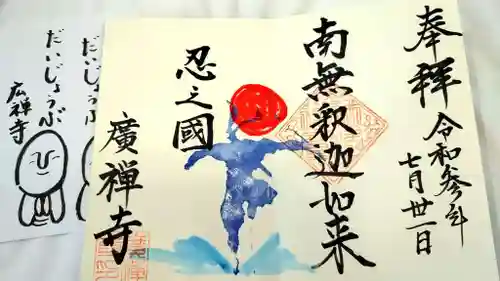 奉拝
令和参年
七月廿一日
南無釈迦如来
忍之國
廣禅寺
だいじょうぶ
だいじょうぶ
広禅寺